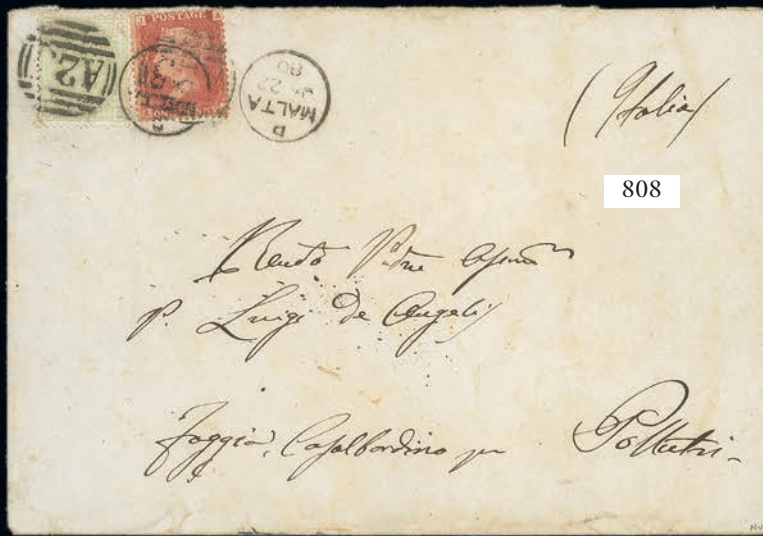 POSTAGE
A25
MALTA
80
(Italia)
808
Rendo Padre
P. Luigi De Angelis
Foggia, Casalbordino per Pollutri